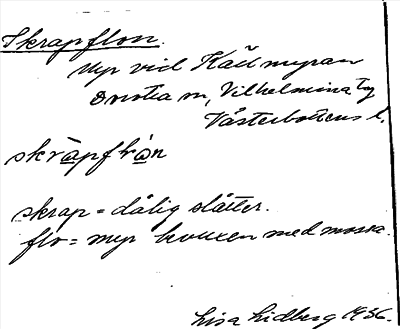 Skrapflon.
Myr vid Källmyran
Dorotea sn, Vilhelmina tg
Västerbottens l.
skrapflon
skrap = dålig slåtter.
flo = myr bevuxen med mossa.
Lisa Lidberg 1936.